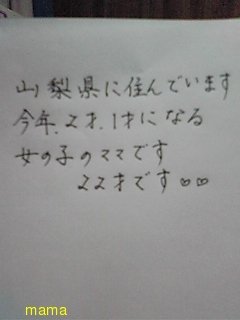 山梨県に住んでいます
今年.2才.1才になる
女の子のママです
22才です♡♡
mama